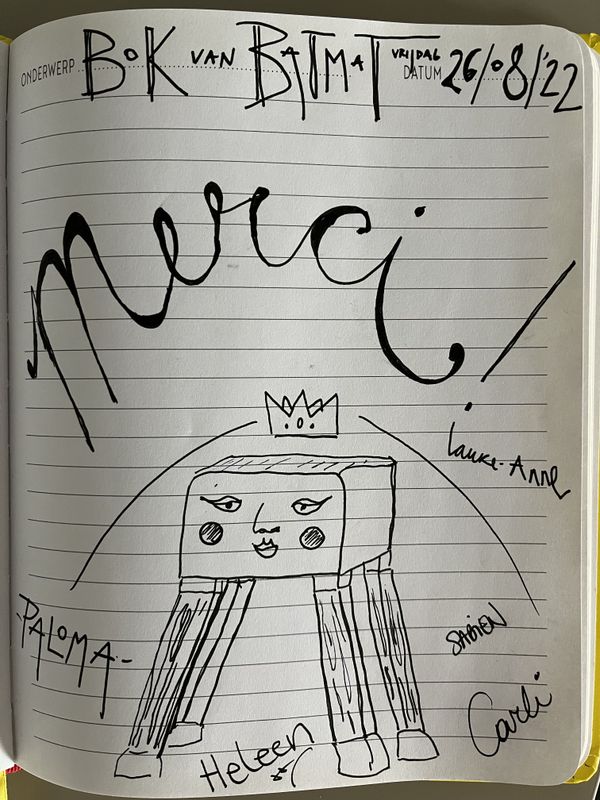 ONDERWERP BOK VAN BATMAT VRIJDAG DATUM 26/08/'22
Merci!
Lauke-Anne
-PALOMA-
SABIEN
Carli
Heleen